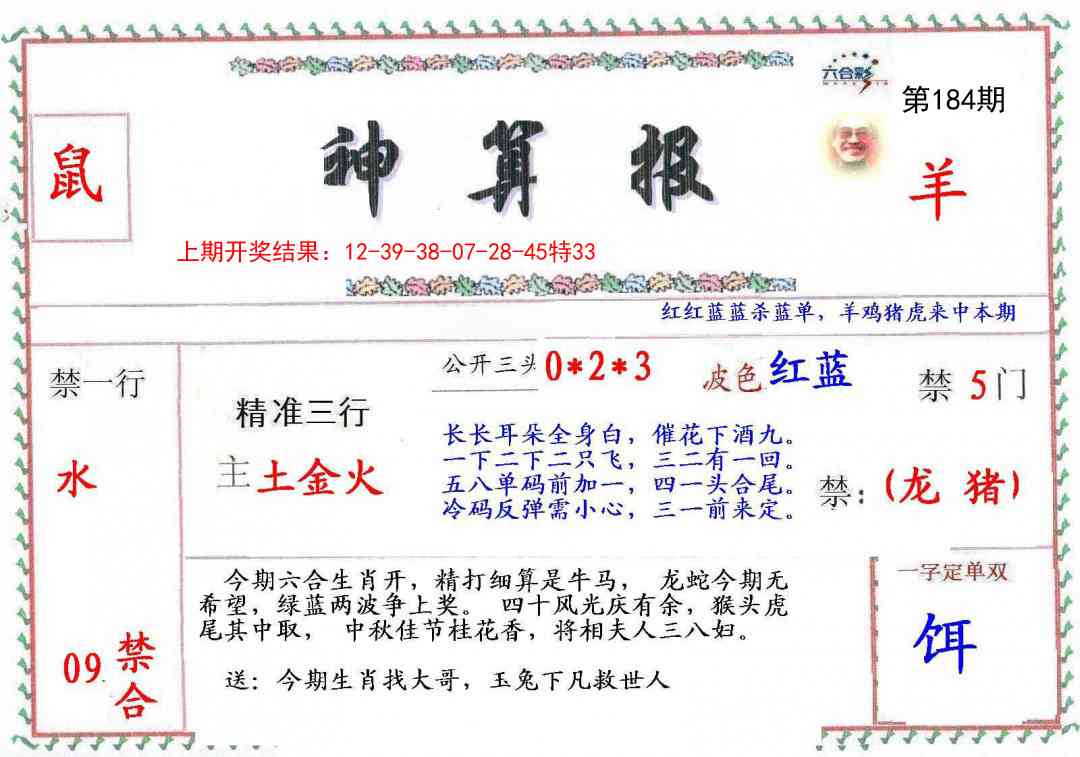 六合彩
第184期
鼠
神算报
羊
上期开奖结果：12-39-38-07-28-45特33
红红蓝蓝杀蓝单，羊鸡猪虎来中本期
禁一行
水
09
禁合
精准三行
主 土金火
公开三头 0*2*3
波色 红蓝
禁 5 门
长长耳朵全身白，催花下酒九。
一下二下二只飞，三二有一回。
五八单码前加一，四一头合尾。
冷码反弹需小心，三一前来定。
禁：(龙 猪)
今期六合生肖开，精打细算是牛马， 龙蛇今期无
希望，绿蓝两波争上奖。 四十风光庆有余，猴头虎
尾其中取， 中秋佳节桂花香，将相夫人三八妇。
送：今期生肖找大哥，玉兔下凡救世人
一字定单双
饵